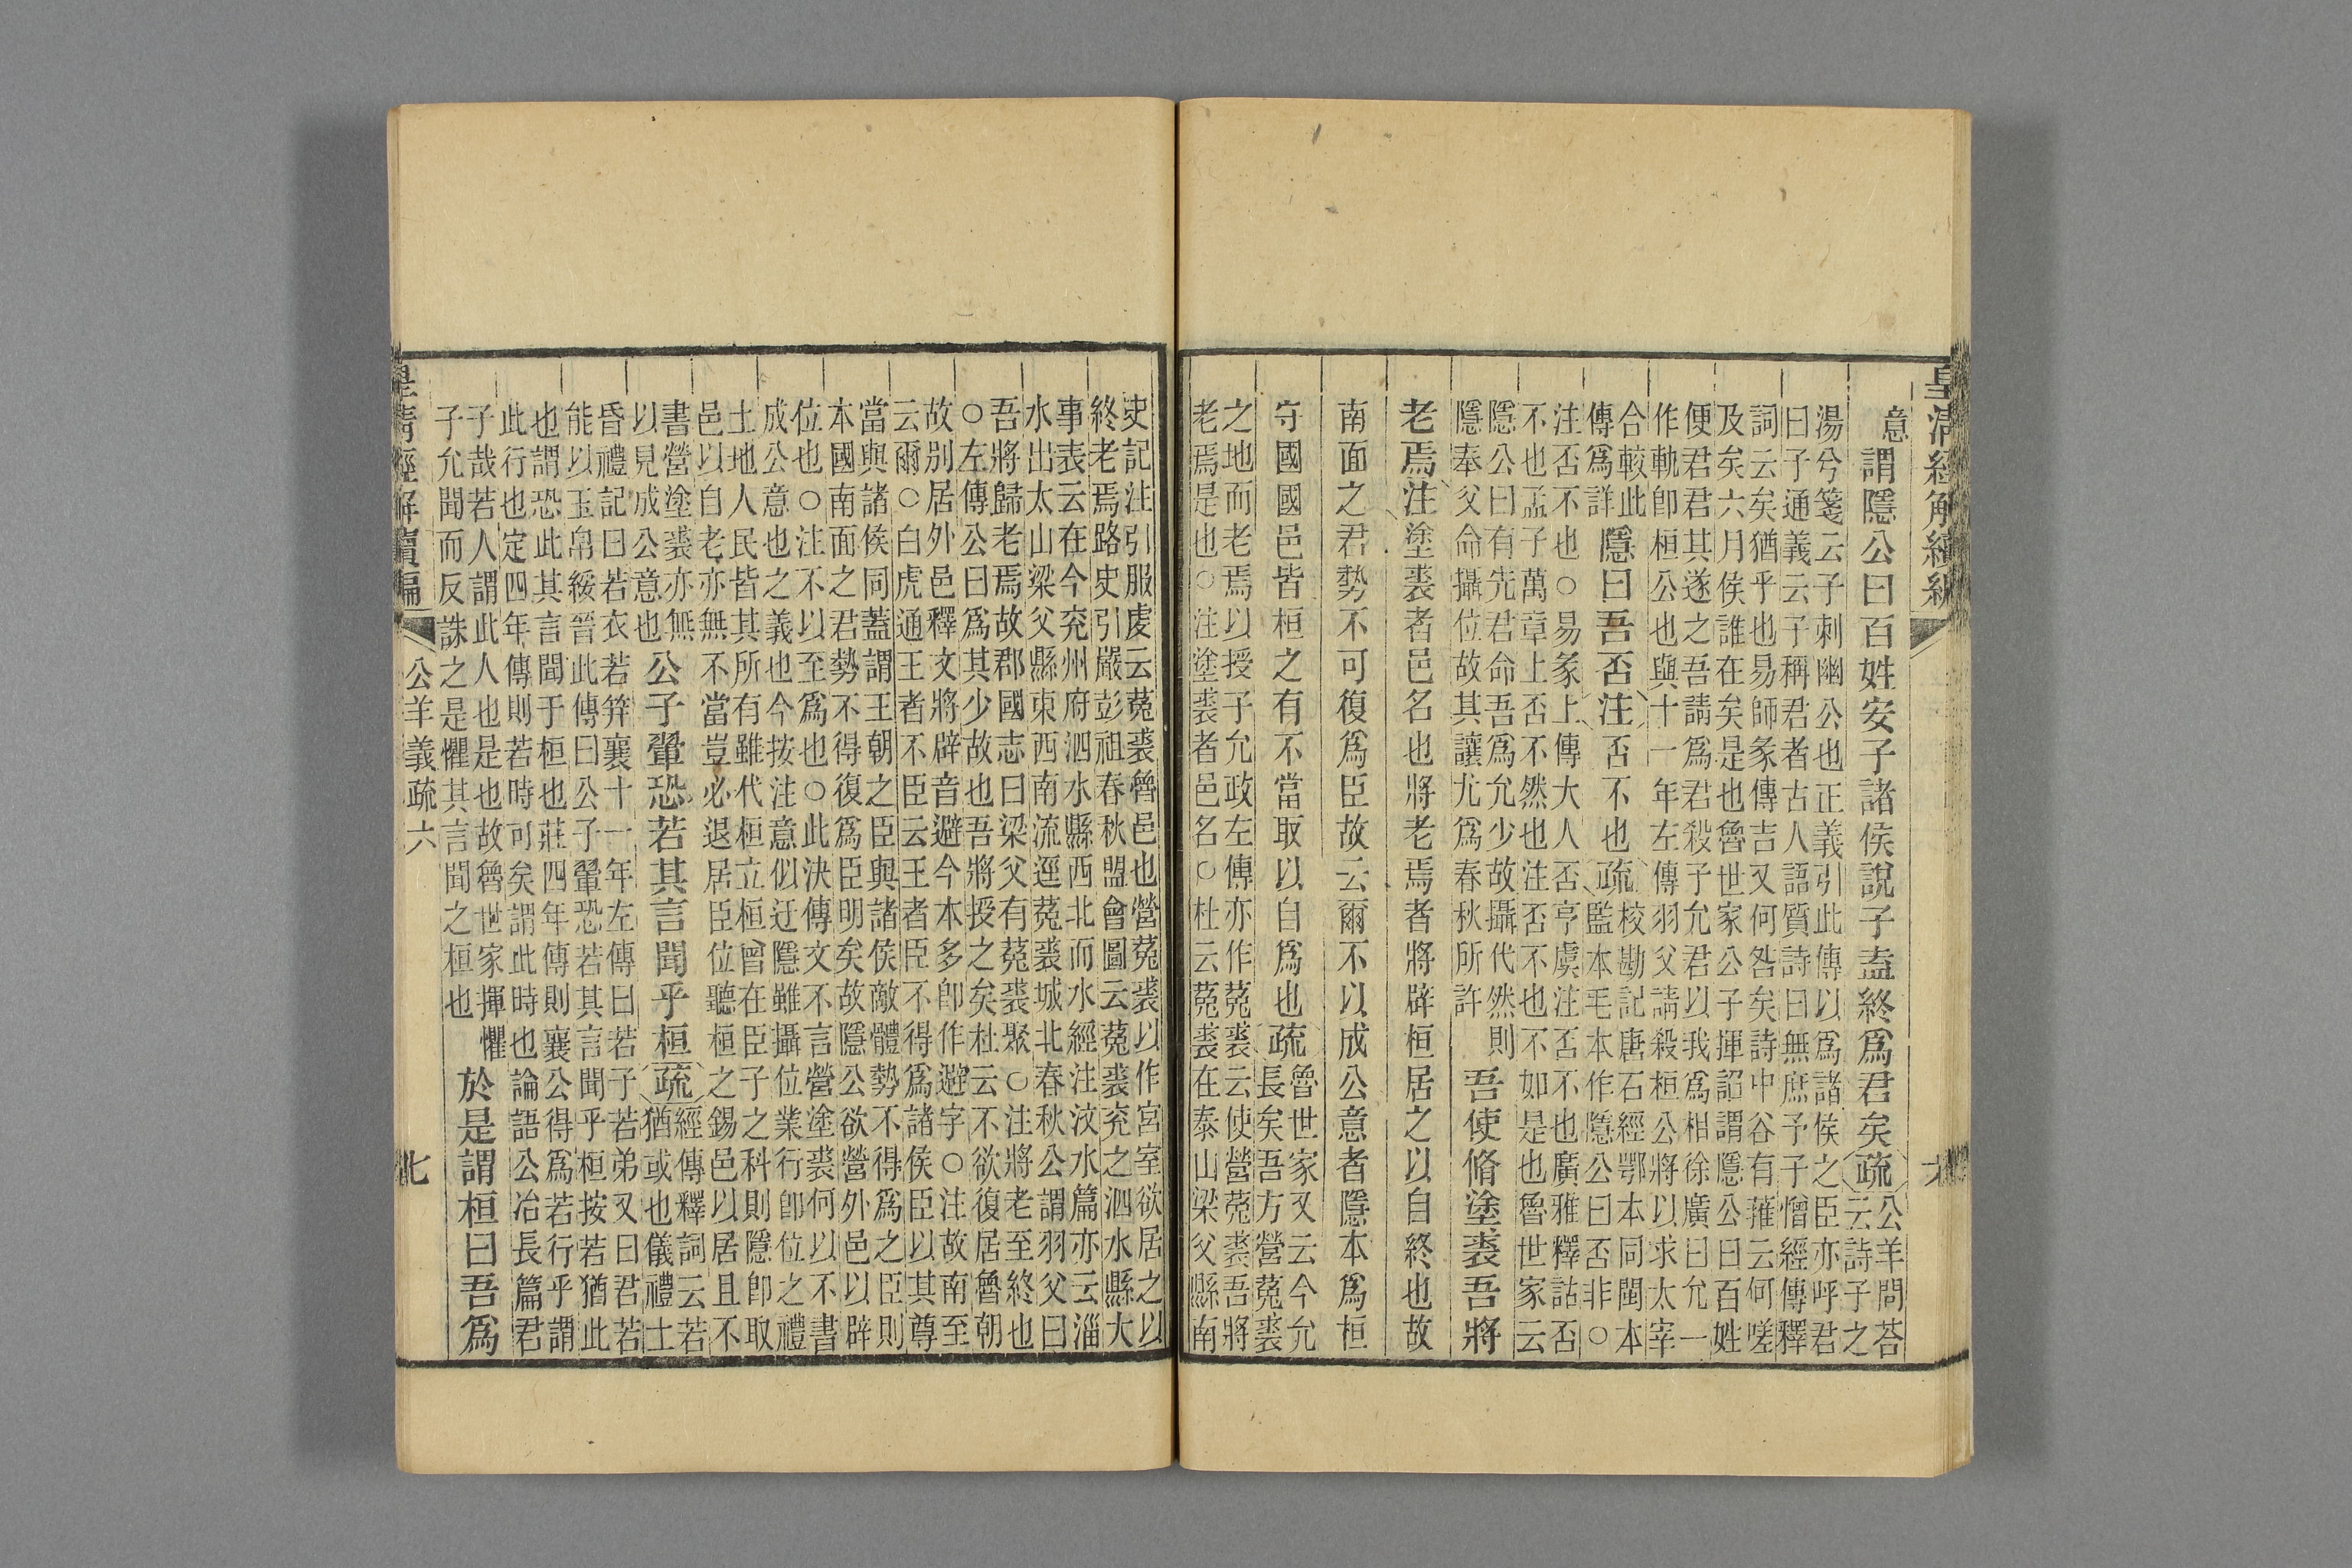 皇清經解續編
意
謂隱公曰百姓安子諸侯說子盍終爲君矣疏公羊問荅
云詩子之
湯兮箋云子刺幽公也正義引此傳以爲諸侯之臣亦呼君
曰子通義云子稱君者古人語質詩曰無庶予子憎經傳釋
詞云矣猶乎也易師彖傳吉又何咎矣詩中谷有蓷云何嗟
及矣六月侯誰在矣是也魯世家公子揮諂謂隱公曰百姓
便君君其遂之吾請爲君殺子允君以我爲相徐廣曰允一
作軌卽桓公也與十一年左傳羽父請殺桓公將以求太宰
合較此
傳爲詳
隱曰吾否注否不也疏校勘記唐石經鄂本同閩本
監本毛本作隱公曰否非○
注否不也○易彖上傳大人否亨虞注否不也廣雅釋詁否
不也孟子萬章上否不然也注否不也不如是也魯世家云
隱公曰有先君命吾爲允少故攝代然則
隱奉父命攝位故其讓尤爲春秋所許
吾使脩塗裘吾將
老焉注塗裘者邑名也將老焉者將辟桓居之以自終也故
南面之君勢不可復爲臣故云爾不以成公意者隱本爲桓
守國國邑皆桓之有不當取以自爲也疏魯世家又云今允
長矣吾方營菟裘
之地而老焉以授子允政左傳亦作菟裘云使營菟裘吾將
老焉是也○注塗裘者邑名○杜云菟裘在泰山梁父縣南
史記注引服虔云菟裘魯邑也營菟裘以作宮室欲居之以
終老焉路史引嚴彭祖春秋盟會圖云菟裘兖之泗水縣大
事表云在今兖州府泗水縣西北而水經注汶水篇亦云淄
水出太山梁父縣東西南流逕菟裘城北春秋公謂羽父曰
吾將歸老焉故郡國志曰梁父有菟裘聚○注將老至終也
○左傳公曰爲其少故也吾將授之矣杜云不欲復居魯朝
故别居外邑釋文將辟音避今本多卽作避字○注故南至
云爾○白虎通王者不臣云王者臣不得爲諸侯臣以其尊
當與諸侯同蓋謂王朝之臣與諸侯敵體勢不得爲之臣則
本國南面之君勢不得復爲臣明矣故隱公欲營外邑以辟
位也○注不以至爲也○此決傳文不言營塗裘何以不書
成公意也之義也今按注意似迂隱雖攝位業行卽位之禮
土地人民皆其所有雖代桓立桓曾在臣子之科則隱卽取
邑以自老亦無不當豈必退居臣位聽桓之錫邑以居且不
書營塗裘亦無
以見成公意也
公子翬恐若其言聞乎桓疏經傳釋詞云若
猶或也儀禮士
昏禮記曰若衣若笄襄十一年左傳曰若子若弟又曰君若
能以玉帛綏晉此傳曰公子翬恐若其言聞乎桓按若猶此
也謂恐此其言聞于桓也莊四年傳則襄公得爲若行乎謂
此行也定四年傳則若時可矣謂此時也論語公冶長篇君
子哉若人謂此人也是也故魯世家揮懼
子允聞而反誅之是懼其言聞之桓也
於是謂桓曰吾爲
皇清經解續編
公羊義疏六
七